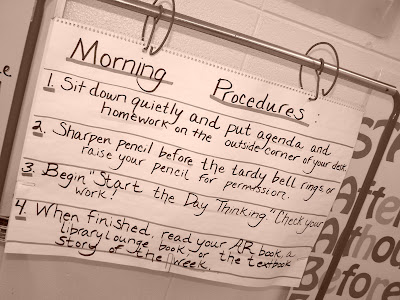 Morning Procedures:
1. Sit down quietly and put agenda and
homework on the outside corner of your desk.
2. Sharpen pencil before the tardy bell rings or
raise your pencil for permission.
3. Begin "Start the Day Thinking." Check your
work!
4. When finished, read your AR book, a
library lounge book, or the textbook
story of the week.
After
Before